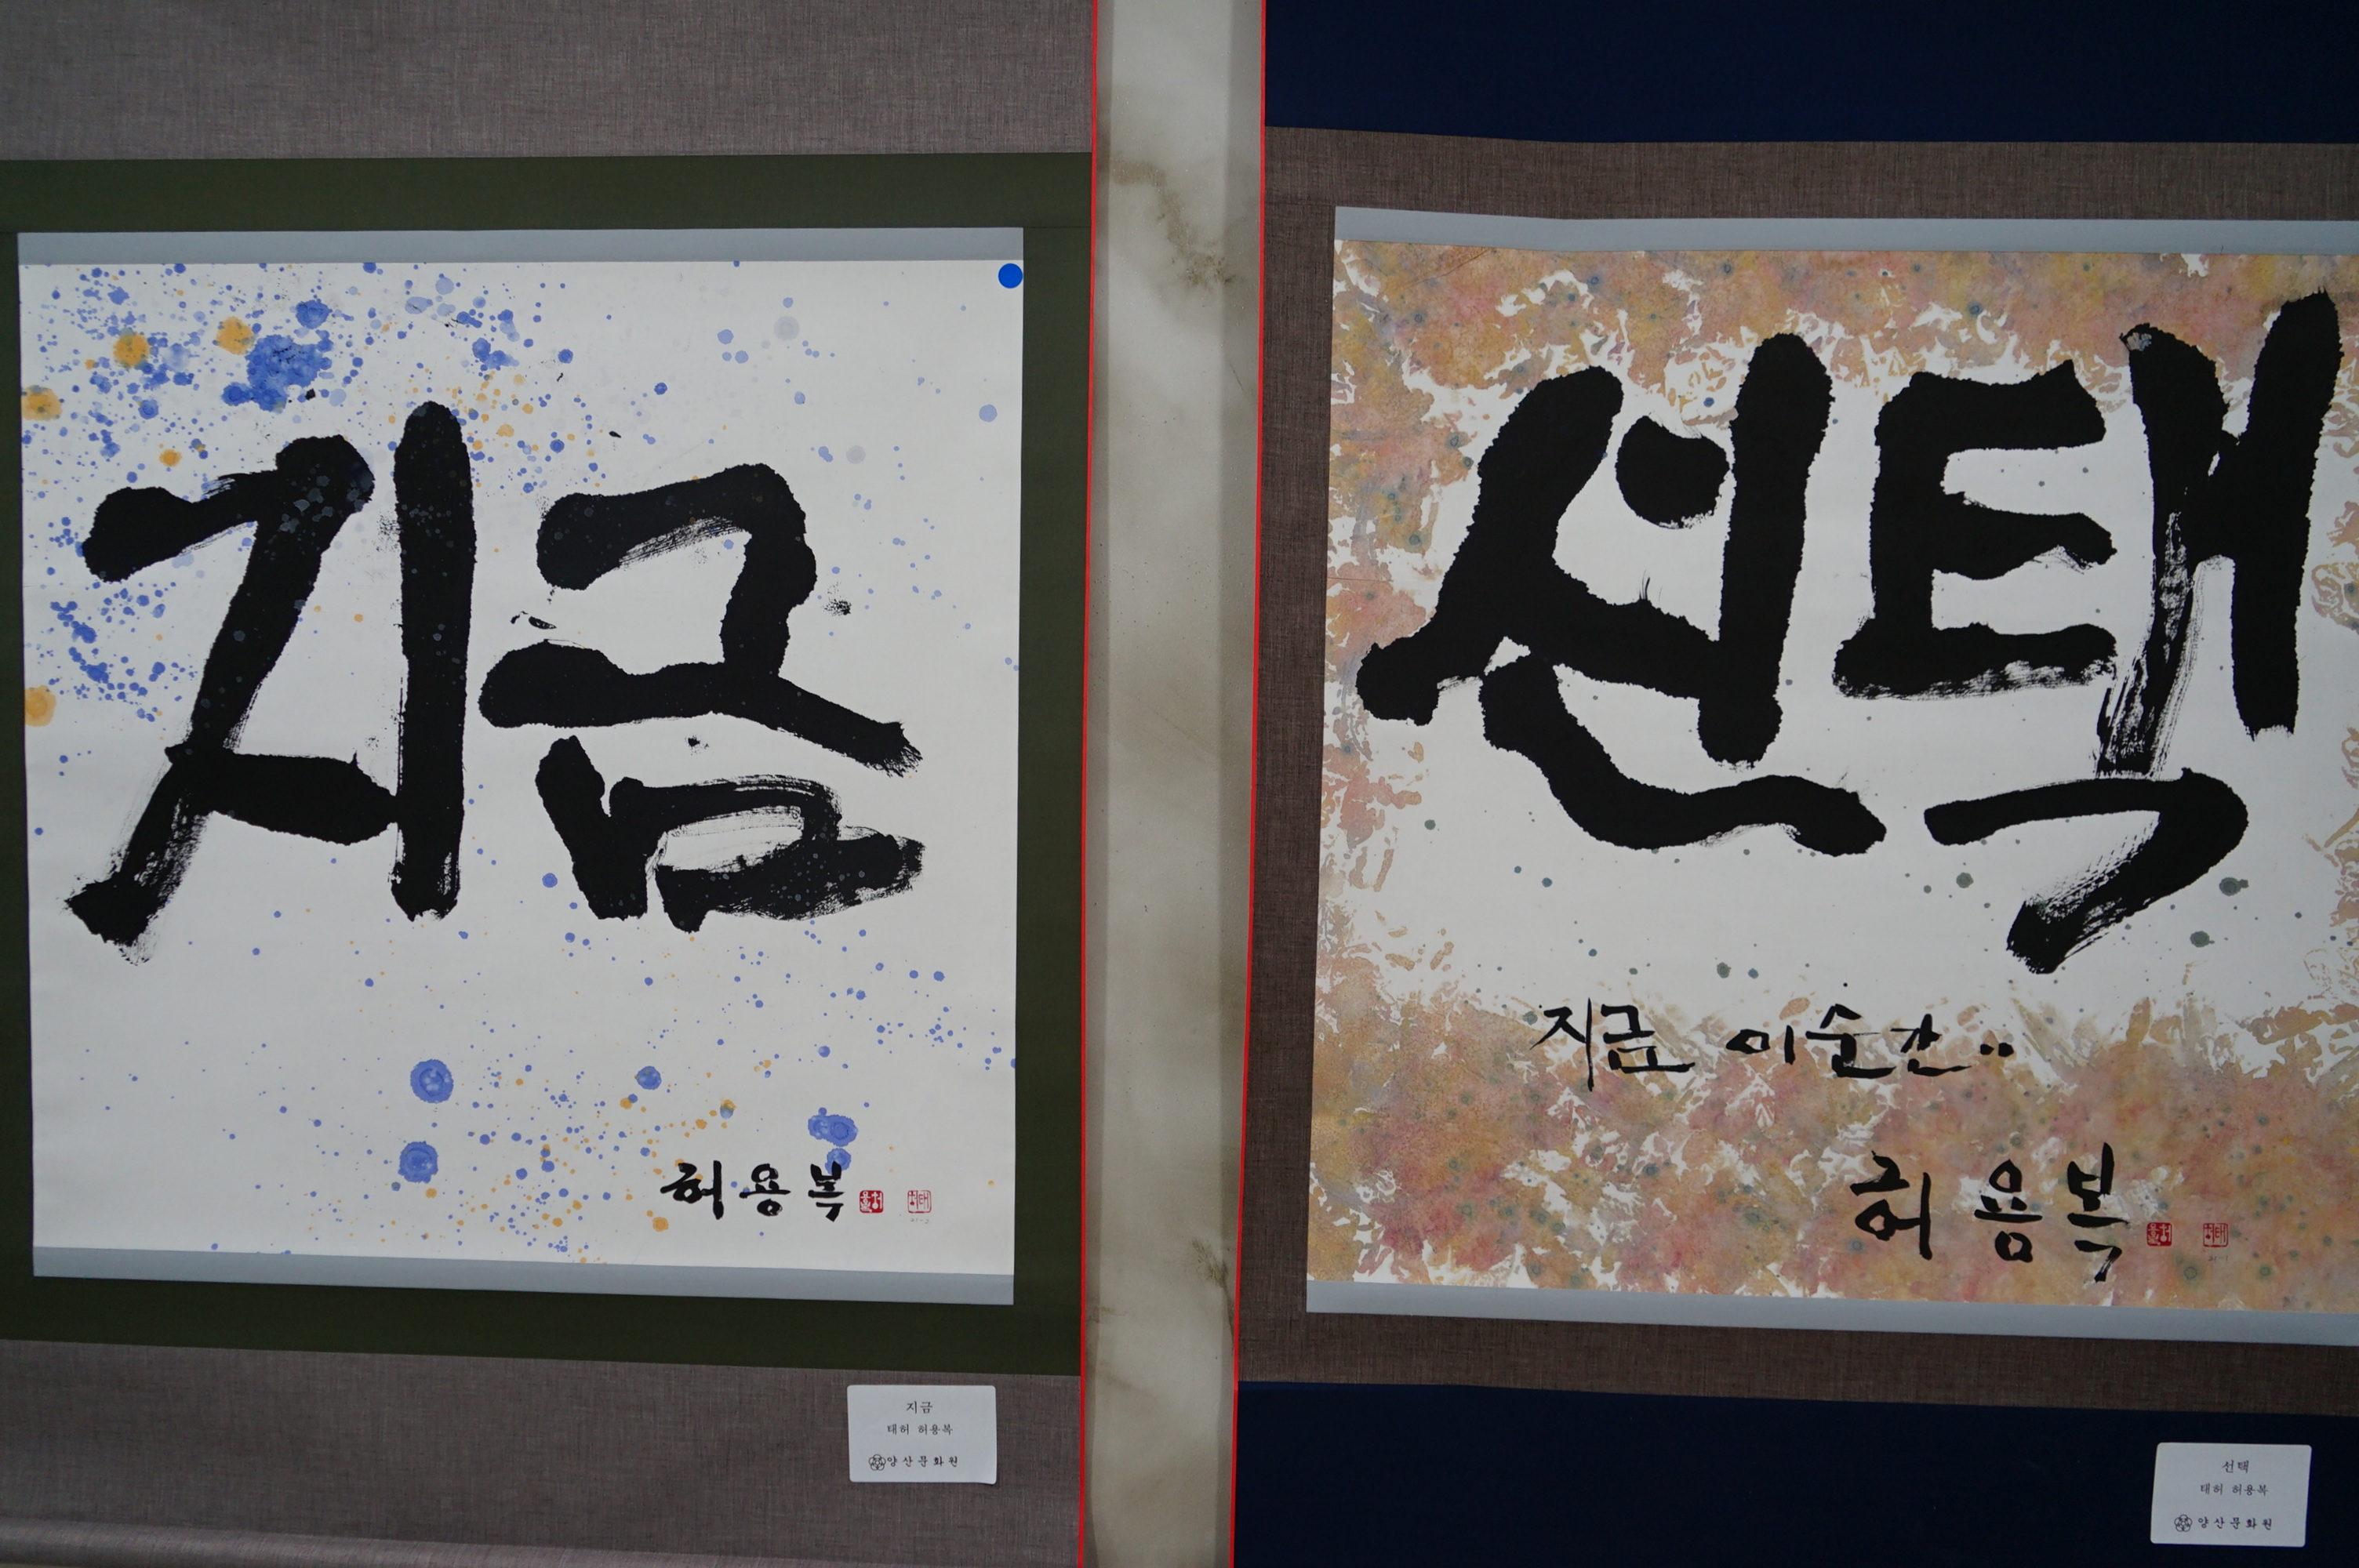 지금
허용복
지금
태허 허용복
양산문화원
선택
지금 이순간..
허용복
선택
태허 허용복
양산문화원